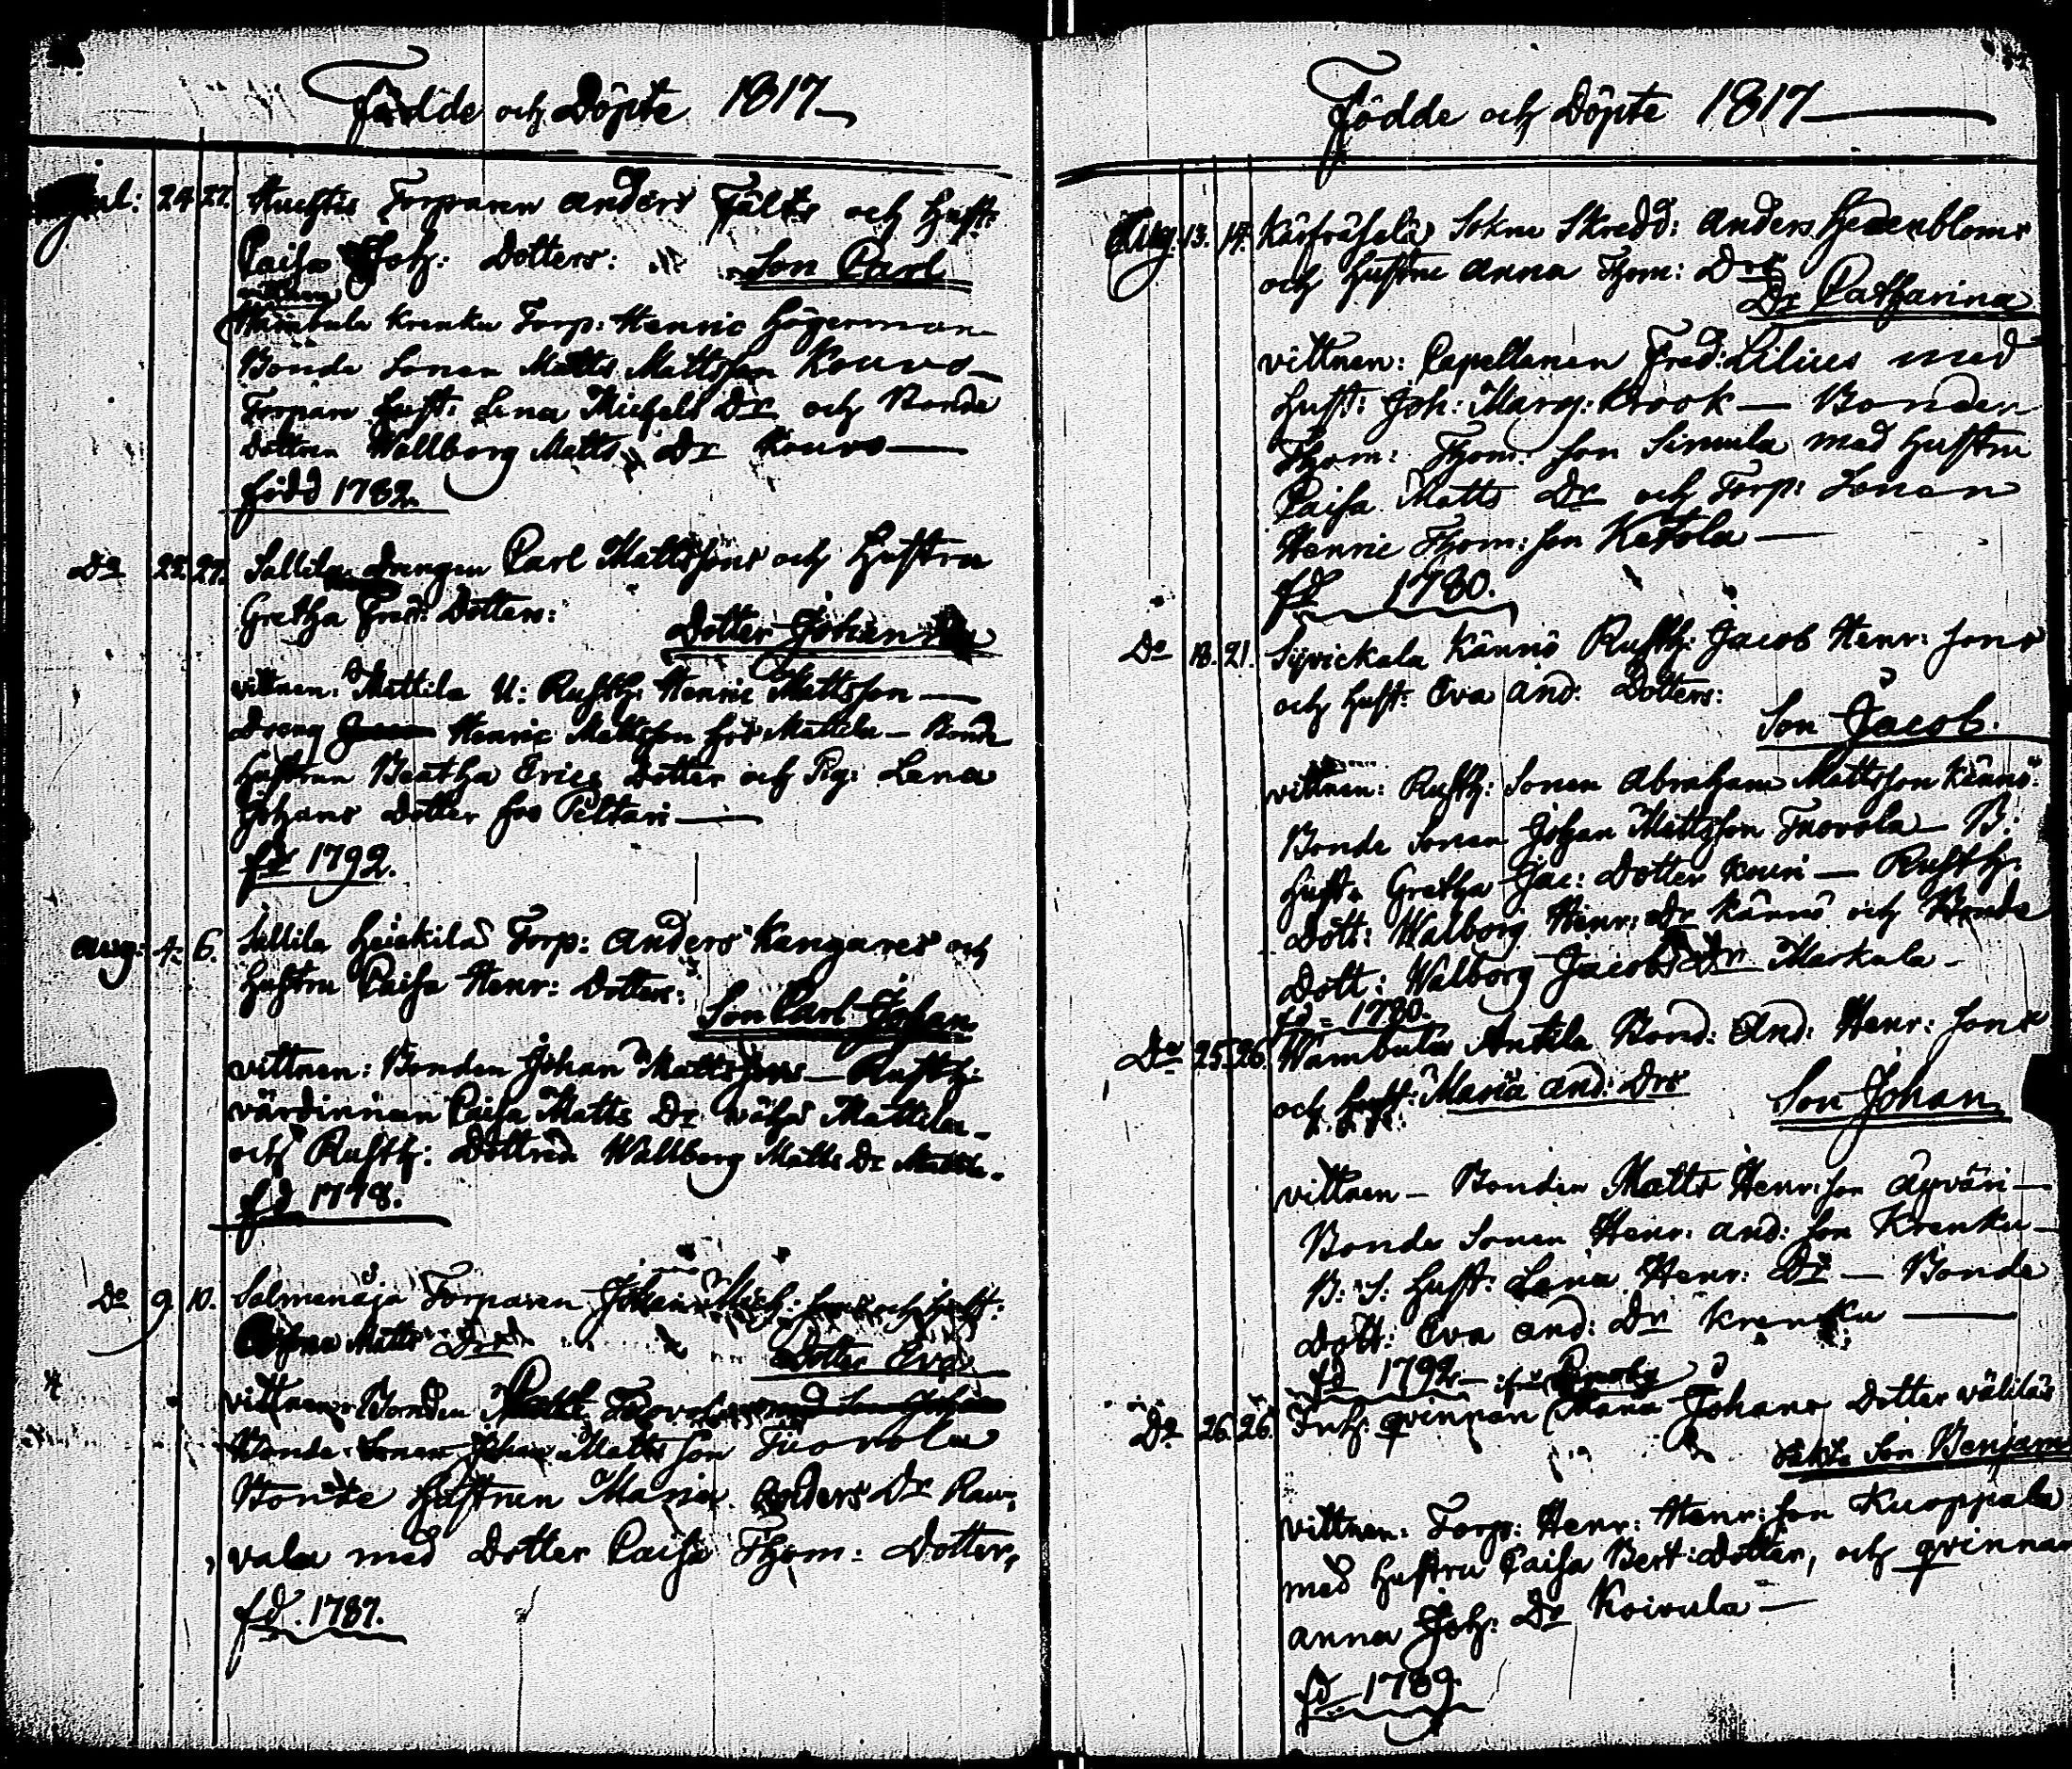 Födde och Döpte 1817
Jul: 24 27. Torparen Anders Fälts och Hust:
Caisa Joh: Dotters: Son Carl
Wambula Krenku Torp: Henric Högerman
Bonde Sonen Matts Mattsson Kouvo
Torpare Hust: Lena Michels Dr och Bonde
dottren Wallborg Matts Dr Kouvo
född 1782.
Do 22. 27. Sallila Drengen Carl Mattssons och Hustru
Gretha Fred: Dotters: Dotter Johan
vittnen: Mattila U: Rusth: Henric Mattsson
Dreng Henric Mattsson hos Mattila Bonde
Hustrun Beatha Erics Dotter och Pig: Lena
Johans Dotter hos Peltari
fd 1792.
Aug: 4. 6. Sallila Heickilä Torp: Anders Kangares och
Hustru Caisa Henr: Dotters: Son Carl Johan
vittnen: Bonden Johan Mattssons Rusth:
värdinnan Caisa Matts Dr Mattila
och Rusth: Dottren Wallborg Matts Dr
fd 1778.
Do 9. 10. Salmenoja Torparen Johan Mich: sons och Hust:
Matts Drs Dotter Eva
vittnen Bonden
Bonde Sonen Johan Matts son Tuovola
Bonde Hustrun Maria Anders Dr Rau,
vala med Dotter Caisa Thom: Dotter,
fd. 1787.
Födde och Döpte 1817
Aug. 13. 17. Sokne Skredd: Anders Hedenbloms
och Hustru Anna Thom: Drs
Dr Catharina
vittnen: Capellanen Fred: Lilius med
Hust: Joh: Marg: Krook — Bonden
Thom: Thom: son Simula med Hustru
Caisa Matts Dr och Torp: Sonen
Henric Thom: son Ketola
fd 1780.
Do 18. 21. Syvickala Kännö Rusth: Jacob Henr: sons
och Hust: Eva And: Dotters:
Son Jacob.
vittnen: Rusth: Sonen Abraham Mattsson Kännö.
Bonde Sonen Johan Mattsson Tuovola — B:
Hust: Gretha Jac: Dotter Kouri — Rusth:
Dott: Walborg Henr: Dr Kännö och Bonde
Dott: Walborg Jacobs Dr Markula
fd 1780.
Do 25. 26. Wambula Antila Bond: And: Henr: sons
och Hust: Maria And: Drs Son Johan
vittnen — Bonden Matts Henr: son Äyväri —
Bonde Sonen Henr: And: son Krenku —
B: S: Hust: Lena Henr: Dr — Bonde
Dott: Eva And: Dr Krenku
fd 1792
Do 26. 26. Inh: qvinnan Maria Johans Dotter
Son Benjam
vittnen: Torp: Henr: Henr: son Kuoppala
med Hustru Caisa Bert: Dotter, och qvinnan
Anna Joh: Dr Koivula
fd 1789.